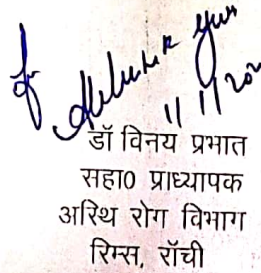 11/1/202
डॉ विनय प्रभात
सहा0 प्राध्यापक
अस्थि रोग विभाग
रिम्स, राँची